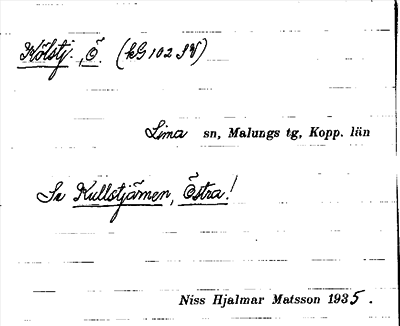 Kölstj., Ö. (kG 102 SV)
Lima sn, Malungs tg, Kopp. län
Se Kullstjärnen, Östra!
Niss Hjalmar Matsson 1935.